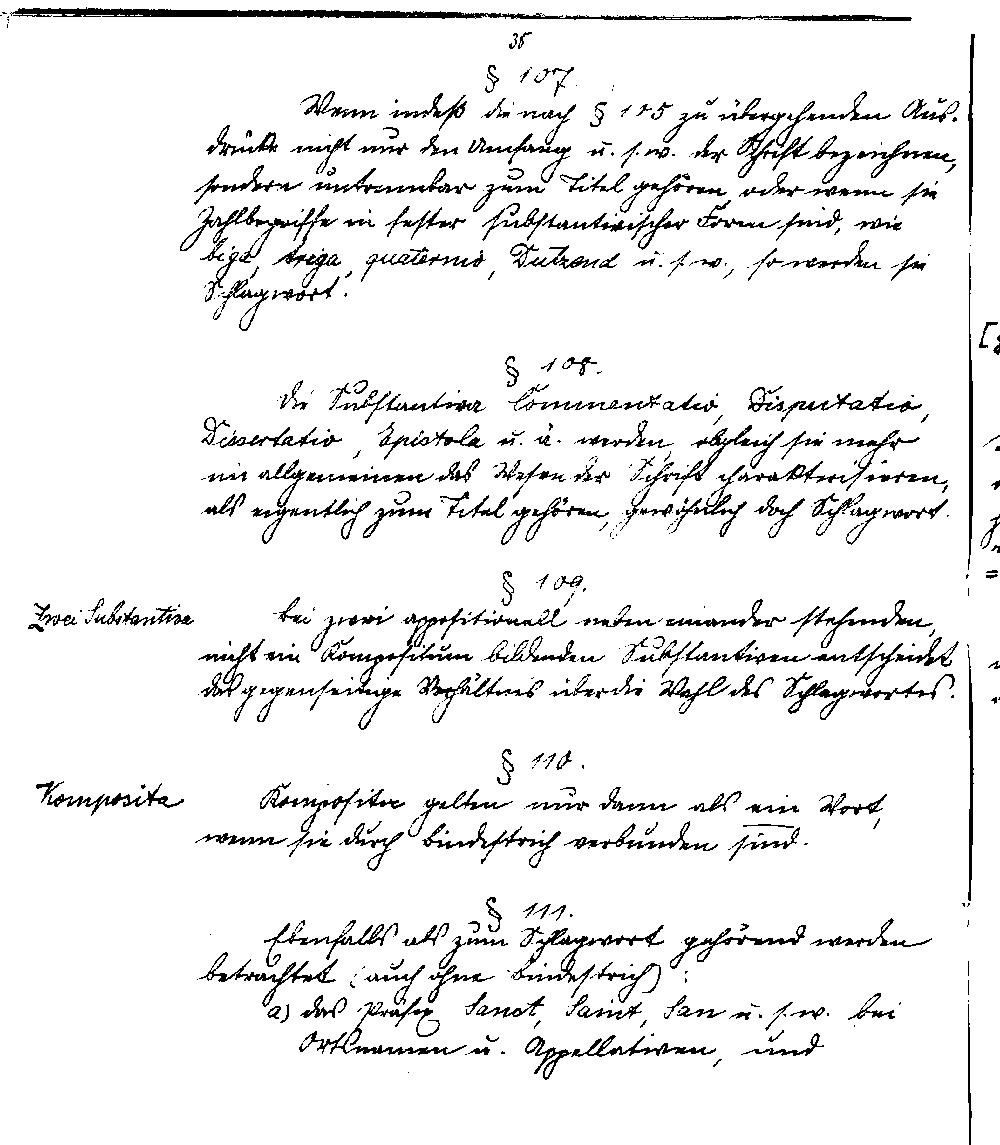 38
§ 107.
Wenn indeß die nach § 105 zu übergehenden Aus-
drücke nicht nur den Umfang u. s. w. der Schrift bezeichnen,
sondern untrennbar zum Titel gehören, oder wenn sie
Zahlbegriffe in fester substantivischer Form sind, wie
biga, triga, quaternio, Dutzend u. s. w., so werden sie
Schlagwort.
§ 108.
Die Substantiva Commentatio, Disputatio,
Dissertatio, Epistola u. ä. werden, obgleich sie mehr
im allgemeinen das Wesen der Schrift charakterisieren,
als eigentlich zum Titel gehören, gewöhnlich doch Schlagwort.
§ 109.
Zwei Substantiva
Bei zwei appositionell neben einander stehenden,
nicht ein Kompositum bildenden Substantiven entscheidet
das gegenseitige Verhältnis über die Wahl des Schlagwortes.
§ 110.
Komposita
Komposita gelten nur dann als ein Wort,
wenn sie durch Bindestrich verbunden sind.
§ 111.
Ebenfalls als zum Schlagwort gehörend werden
betrachtet (auch ohne Bindestrich):
a) das Präfix Sanct, Saint, San u. s. w. bei
Ortsnamen u. Appellativen, und